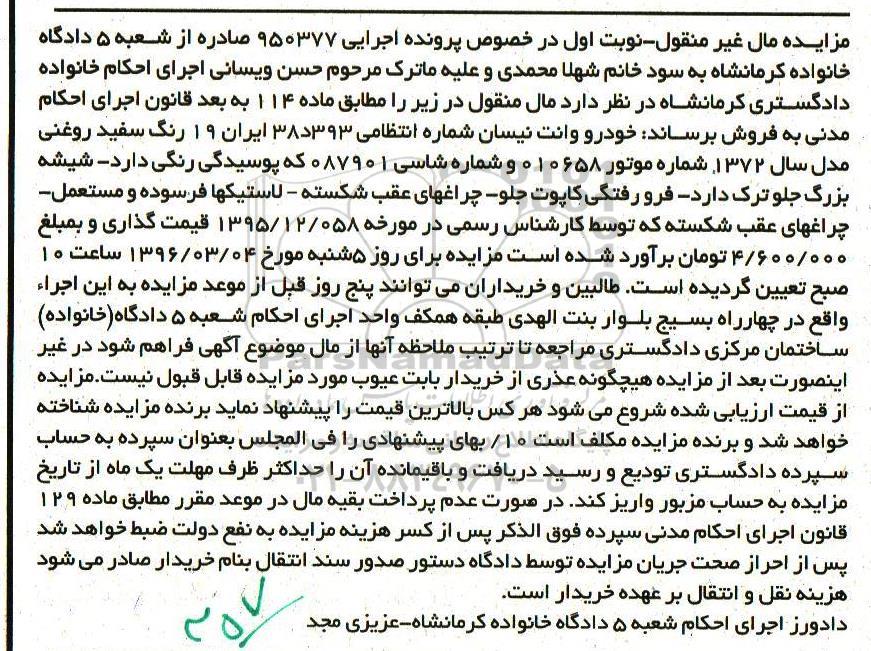 مزایده مال غیر منقول-نوبت اول در خصوص پرونده اجرایی ۹۵۰۳۷۷ صادره از شعبه ۵ دادگاه
خانواده کرمانشاه به سود خانم شهلا محمدی و علیه ماترک مرحوم حسن ویسانی اجرای احکام خانواده
دادگستری کرمانشاه در نظر دارد مال منقول در زیر را مطابق ماده ۱۱۴ به بعد قانون اجرای احکام
مدنی به فروش برساند: خودرو وانت نیسان شماره انتظامی ۳۹۳د۳۸ ایران ۱۹ رنگ سفید روغنی
مدل سال ۱۳۷۲ شماره موتور ۰۱۰۶۵۸ و شماره شاسی ۰۸۷۹۰۱ که پوسیدگی رنگی دارد- شیشه
بزرگ جلو ترک دارد- فرو رفتگی کاپوت جلو- چراغهای عقب شکسته - لاستیکها فرسوده و مستعمل-
چراغهای عقب شکسته که توسط کارشناس رسمی در مورخه ۱۳۹۵/۱۲/۰۵۸ قیمت گذاری و بمبلغ
۴/۶۰۰/۰۰۰ تومان برآورد شده است مزایده برای روز ۵شنبه مورخ ۱۳۹۶/۰۳/۰۴ ساعت ۱۰
صبح تعیین گردیده است. طالبین و خریداران می توانند پنج روز قبل از موعد مزایده به این اجراء
واقع در چهارراه بسیج بلوار بنت الهدی طبقه همکف واحد اجرای احکام شعبه ۵ دادگاه(خانواده)
ساختمان مرکزی دادگستری مراجعه تا ترتیب ملاحظه آنها از مال موضوع آگهی فراهم شود در غیر
اینصورت بعد از مزایده هیچگونه عذری از خریدار بابت عیوب مورد مزایده قابل قبول نیست.مزایده
از قیمت ارزیابی شده شروع می شود هر کس بالاترین قیمت را پیشنهاد نماید برنده مزایده شناخته
خواهد شد و برنده مزایده مکلف است ۱۰٪ بهای پیشنهادی را فی المجلس بعنوان سپرده به حساب
سپرده دادگستری تودیع و رسید دریافت و باقیمانده آن را حداکثر ظرف مهلت یک ماه از تاریخ
مزایده به حساب مزبور واریز کند. در صورت عدم پرداخت بقیه مال در موعد مقرر مطابق ماده ۱۲۹
قانون اجرای احکام مدنی سپرده فوق الذکر پس از کسر هزینه مزایده به نفع دولت ضبط خواهد شد
پس از احراز صحت جریان مزایده توسط دادگاه دستور صدور سند انتقال بنام خریدار صادر می شود
هزینه نقل و انتقال بر عهده خریدار است.
دادورز اجرای احکام شعبه ۵ دادگاه خانواده کرمانشاه-عزیزی مجد
ParsNamadData
۰۲۱-۸۸۳۴۹۶۷۰-۵